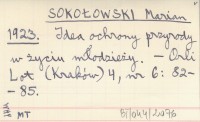 SOKOŁOWSKI Marian
1923. Idea ochrony przyrody
w życiu młodzieży. — Orli
Lot (Kraków) 4, nr 6: 82-
- 85.
MT